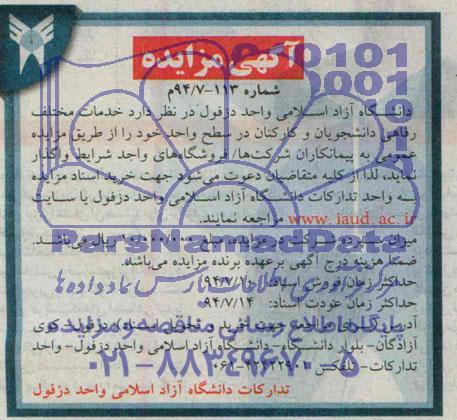 آگهی مزایده
شماره ۱۱۳-۹۴/۷م
دانشگاه آزاد اسلامی واحد دزفول در نظر دارد خدمات مختلف
رفاهی دانشجویان و کارکنان در سطح واحد خود را از طریق مزایده
عمومی به پیمانکاران شرکت‌ها/ فروشگاه‌های واجد شرایط واگذار
نماید، لذا از کلیه متقاضیان دعوت می‌شود جهت خرید اسناد مزایده
به واحد تدارکات دانشگاه آزاد اسلامی واحد دزفول یا سایت
www.iaud.ac.ir مراجعه نمایند.
میزان سپرده شرکت در مزایده، مبلغ ریال می‌باشد.
ضمناً هزینه درج آگهی برعهده برنده مزایده می‌باشد.
حداکثر زمان فروش اسناد:
حداکثر زمان عودت اسناد: ۹۴/۷/۱۴
آدرس دزفول- کوی
آزادگان- بلوار دانشگاه- دانشگاه آزاد اسلامی واحد دزفول- واحد
تدارکات- تلفکس
تدارکات دانشگاه آزاد اسلامی واحد دزفول
ParsNamadData
پایگاه اطلاع رسانی مناقصه و مزایده
۰۲۱-۸۸۳۴۹۶۷۰-۵